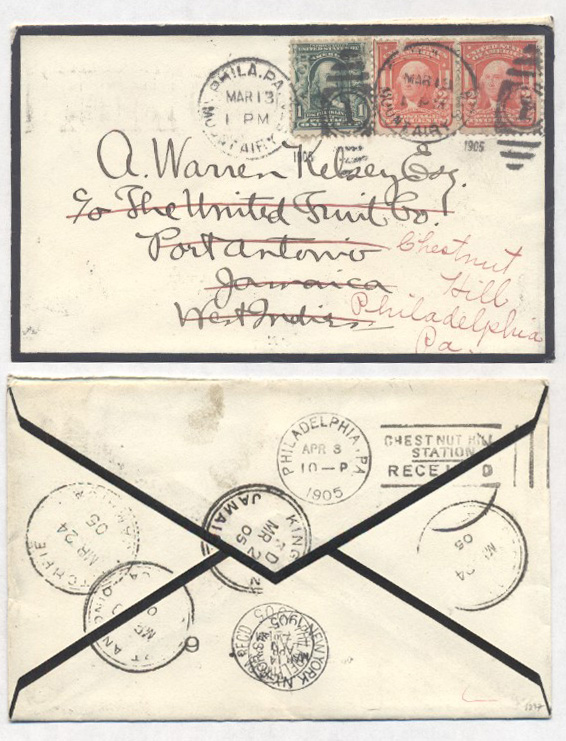 PHILA. PA.
MAR 13
1 PM
MOUNT AIRY
1905
MAR 13
1 PM
MOUNT AIRY
1905
A. Warren Kelsey Esq.
c/o The United Fruit Co.
Port Antonio
Jamaica
West Indies
Chestnut
Hill
Philadelphia
Pa.
PHILADELPHIA, PA
APR 8
10 - P
1905
CHESTNUT HILL
STATION
RECEIVED
MR 24
05
KING
JAMAI
MR 2
05
6
NEW YORK
1905
REC'D